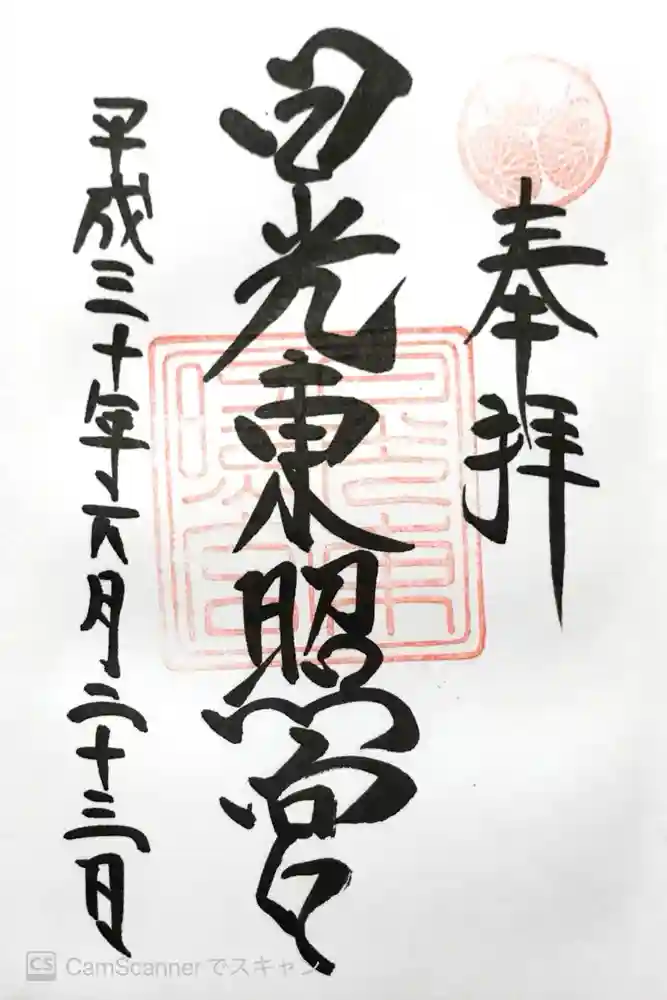 奉拝
日光東照宮
平成三十年六月二十三日
CS CamScannerでスキャン